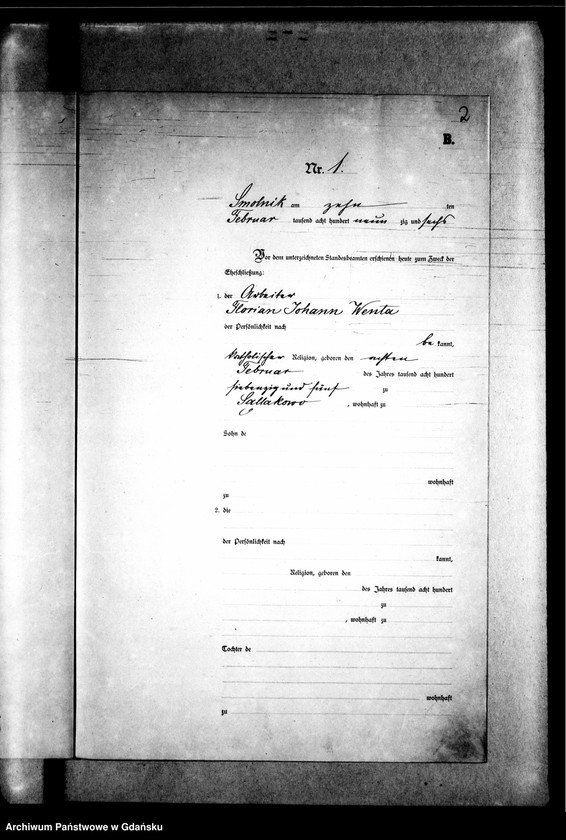 2
B.
Nr. 1.
Smolnik am zehn ten
Februar tausend acht hundert neun zig und sechs
Vor dem unterzeichneten Standesbeamten erschienen heute zum Zweck der
Eheschließung:
1. der Arbeiter
Florian Johann Wenta
der Persönlichkeit nach
be kannt,
katholischer Religion, geboren den achten
Februar des Jahres tausend acht hundert
siebenzig und fünf zu
Sallakowo, wohnhaft zu
Sohn de
wohnhaft
zu
2. die
der Persönlichkeit nach
kannt,
Religion, geboren den
des Jahres tausend acht hundert
zu
, wohnhaft zu
Tochter de
wohnhaft
zu
Archiwum Państwowe w Gdańsku